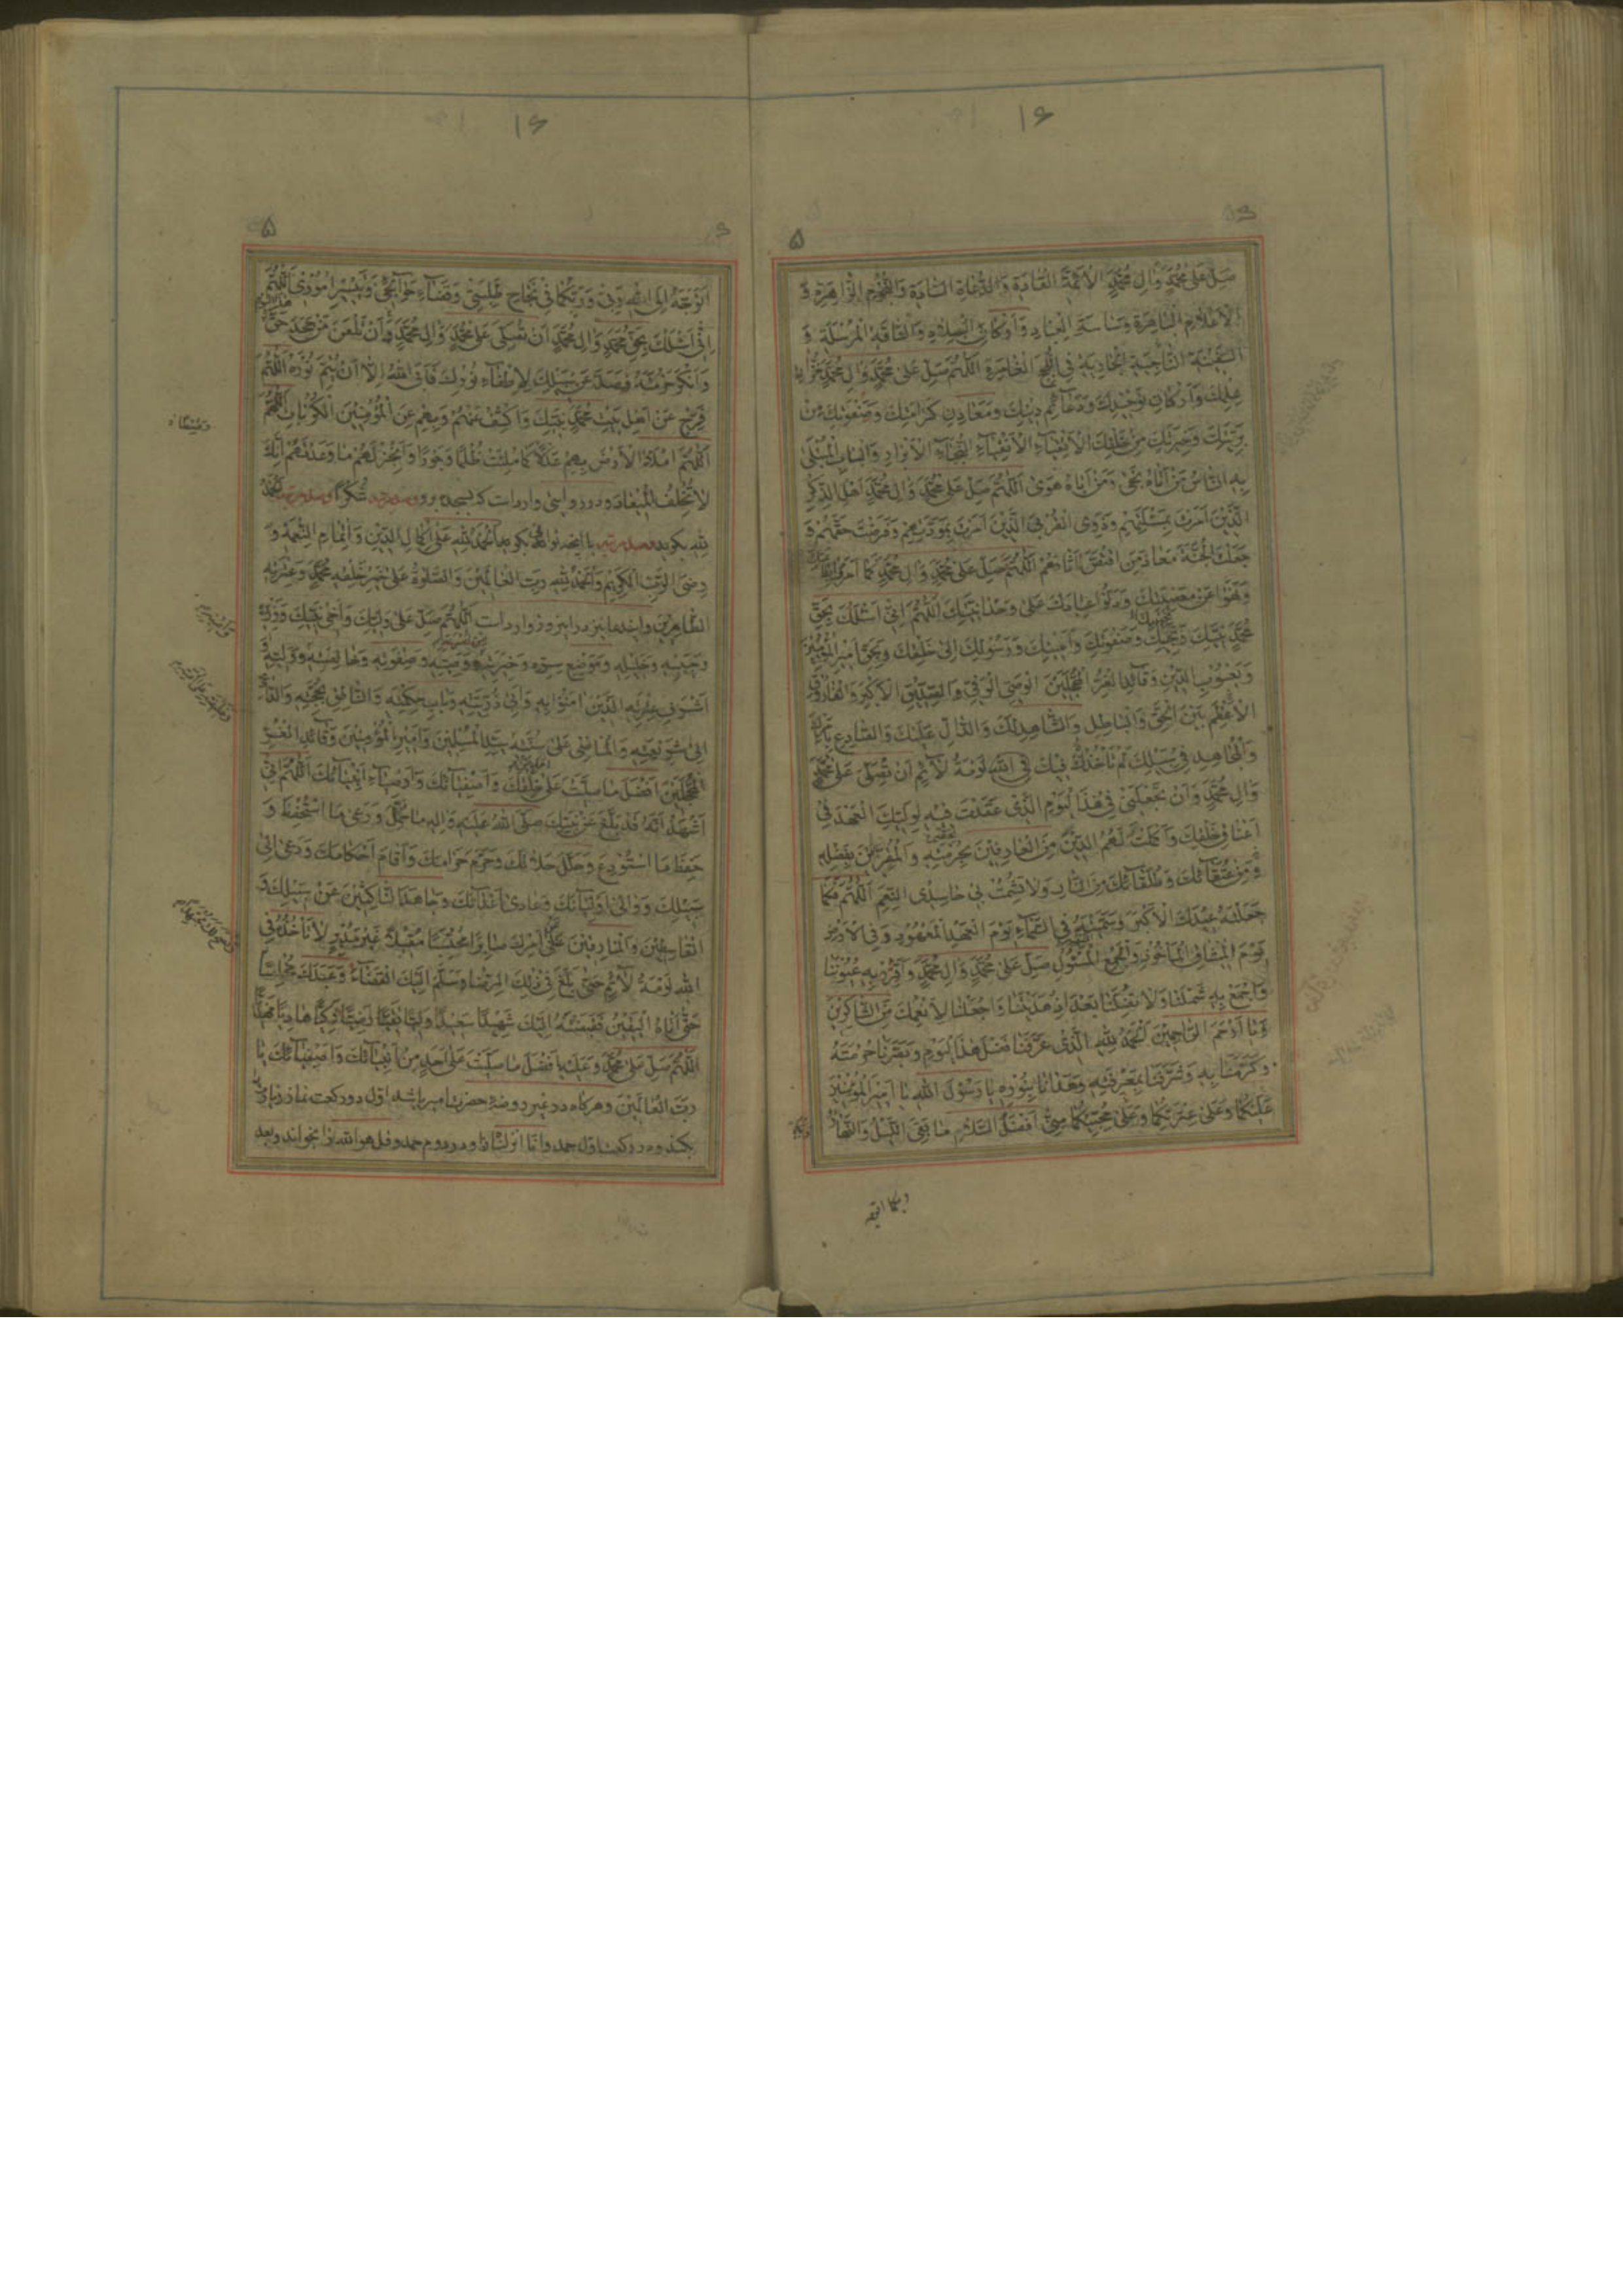 صَلِّ عَلٰى مُحَمَّدٍ وَاٰلِ مُحَمَّدٍ الْاَئِمَّةِ الْقَادَةِ وَالدُّعَاةِ السَّادَةِ وَالنُّجُومِ الزَّاهِرَةِ وَ
الْاَعْلَامِ الْبَاهِرَةِ وَسَاسَةِ الْعِبَادِ وَاَرْكَانِ الْبِلَادِ وَالنَّاقَةِ الْمُرْسَلَةِ وَ
السَّفِينَةِ النَّاجِيَةِ الْجَارِيَةِ فِى اللُّجَجِ الْغَامِرَةِ اَللّٰهُمَّ صَلِّ عَلٰى مُحَمَّدٍ وَاٰلِ مُحَمَّدٍ خُزَّانِ
عِلْمِكَ وَاَرْكَانِ تَوْحِيدِكَ وَدَعَآئِمِ دِينِكَ وَمَعَادِنِ كَرَامَتِكَ وَصَفْوَتِكَ مِنْ
بَرِيَّتِكَ وَخِيَرَتِكَ مِنْ خَلْقِكَ الْاَتْقِيَآءِ الْاَنْقِيَآءِ النُّجَبَآءِ الْاَبْرَارِ وَالْبَابِ الْمُبْتَلٰى
بِهِ النَّاسُ مَنْ اَتَاهُ نَجٰى وَمَنْ اَبَاهُ هَوٰى اَللّٰهُمَّ صَلِّ عَلٰى مُحَمَّدٍ وَاٰلِ مُحَمَّدٍ اَهْلِ الذِّكْرِ
الَّذِينَ اَمَرْتَ بِمَسْئَلَتِهِمْ وَذَوِى الْقُرْبَى الَّذِينَ اَمَرْتَ بِمَوَدَّتِهِمْ وَفَرَضْتَ حَقَّهُمْ وَ
جَعَلْتَ الْجَنَّةَ مَعَادَ مَنِ اقْتَصَّ اٰثَارَهُمْ اَللّٰهُمَّ صَلِّ عَلٰى مُحَمَّدٍ وَاٰلِ مُحَمَّدٍ كَمَا اَمَرُوا بِطَاعَتِكَ
وَنَهَوْا عَنْ مَعْصِيَتِكَ وَدَلُّوا عِبَادَكَ عَلٰى وَحْدَانِيَّتِكَ اَللّٰهُمَّ اِنِّى اَسْئَلُكَ بِحَقِّ
مُحَمَّدٍ نَبِيِّكَ وَنَجِيِّكَ وَصَفْوَتِكَ وَاَمِينِكَ وَرَسُولِكَ اِلٰى خَلْقِكَ وَبِحَقِّ اَمِيرِ الْمُؤْمِنِينَ
وَيَعْسُوبِ الدِّينِ وَقَآئِدِ الْغُرِّ الْمُحَجَّلِينَ الْوَصِىِّ الْوَفِىِّ وَالصِّدِّيقِ الْاَكْبَرِ وَالْفَارُوقِ
الْاَعْظَمِ بَيْنَ الْحَقِّ وَالْبَاطِلِ وَالشَّاهِدِ لَكَ وَالدَّالِّ عَلَيْكَ وَالصَّادِعِ بِاَمْرِكَ
وَالْمُجَاهِدِ فِى سَبِيلِكَ لَمْ تَأْخُذْهُ فِيكَ لَوْمَةُ لَآئِمٍ اَنْ تُصَلِّىَ عَلٰى مُحَمَّدٍ
وَاٰلِ مُحَمَّدٍ وَاَنْ تَجْعَلَنِى فِى هٰذَا الْيَوْمِ الَّذِى عَقَدْتَ فِيهِ لِوَلِيِّكَ الْعَهْدَ فِى
اَعْنَاقِ خَلْقِكَ وَاَكْمَلْتَ لَهُمُ الدِّينَ مِنَ الْعَارِفِينَ بِحُرْمَتِهِ وَالْمُقِرِّينَ بِفَضْلِهِ
مِنْ عُتَقَآئِكَ وَطُلَقَآئِكَ مِنَ النَّارِ وَلَا تُشْمِتْ بِى حَاسِدِى النِّعَمِ اَللّٰهُمَّ فَكَمَا
جَعَلْتَهُ عِيدَكَ الْاَكْبَرَ وَسَمَّيْتَهُ فِى السَّمَآءِ يَوْمَ الْعَهْدِ الْمَعْهُودِ وَفِى الْاَرْضِ
يَوْمَ الْمِيثَاقِ الْمَأْخُوذِ وَالْجَمْعِ الْمَسْئُولِ صَلِّ عَلٰى مُحَمَّدٍ وَاٰلِ مُحَمَّدٍ وَاَقْرِرْ بِهِ عُيُونَنَا
وَاجْمَعْ بِهِ شَمْلَنَا وَلَا تُضِلَّنَا بَعْدَ اِذْ هَدَيْتَنَا وَاجْعَلْنَا لِاَنْعُمِكَ مِنَ الشَّاكِرِينَ
يَا اَرْحَمَ الرَّاحِمِينَ اَلْحَمْدُ لِلّٰهِ الَّذِى عَرَّفَنَا فَضْلَ هٰذَا الْيَوْمِ وَبَصَّرَنَا حُرْمَتَهُ
وَكَرَّمَنَا بِهِ وَشَرَّفَنَا بِمَعْرِفَتِهِ وَهَدَانَا بِنُورِهِ يَا رَسُولَ اللّٰهِ يَا اَمِيرَ الْمُؤْمِنِينَ
عَلَيْكُمَا وَعَلٰى عِتْرَتِكُمَا وَعَلٰى مُحِبِّيكُمَا مِنِّى اَفْضَلُ السَّلَامِ مَا بَقِىَ اللَّيْلُ وَالنَّهَارُ
اَتَوَجَّهُ اِلَى اللّٰهِ رَبِّى وَرَبِّكُمَا فِى نَجَاحِ طَلِبَتِى وَقَضَآءِ حَوَآئِجِى وَتَيْسِيرِ اُمُورِى اَللّٰهُمَّ
اِنِّى اَسْئَلُكَ بِحَقِّ مُحَمَّدٍ وَاٰلِ مُحَمَّدٍ اَنْ تُصَلِّىَ عَلٰى مُحَمَّدٍ وَاٰلِ مُحَمَّدٍ وَاَنْ تَلْعَنَ مَنْ جَحَدَ حَقَّ
وَاَنْكَرَ حُرْمَتَهُ فَصَدَّ عَنْ سَبِيلِكَ لِاِطْفَآءِ نُورِكَ فَاَبَى اللّٰهُ اِلَّا اَنْ يُتِمَّ نُورَهُ اَللّٰهُمَّ
فَرِّجْ عَنْ اَهْلِ بَيْتِ مُحَمَّدٍ نَبِيِّكَ وَاكْشِفْ عَنْهُمْ وَبِهِمْ عَنِ الْمُؤْمِنِينَ الْكُرُبَاتِ
اَللّٰهُمَّ امْلَأِ الْاَرْضَ بِهِمْ عَدْلًا كَمَا مُلِئَتْ ظُلْمًا وَجَوْرًا وَاَنْجِزْ لَهُمْ مَا وَعَدْتَهُمْ اِنَّكَ
لَا تُخْلِفُ الْمِيعَادَ ودر روايتى وارد است كه بسجده رود وصد مرتبه شُكْرًا وصد مرتبه اَلْحَمْدُ
لِلّٰهِ بگويد اَلْحَمْدُ لِلّٰهِ عَلٰى اِكْمَالِ الدِّينِ وَاِتْمَامِ النِّعْمَةِ وَ
رِضَى الرَّبِّ الْكَرِيمِ وَالْحَمْدُ لِلّٰهِ رَبِّ الْعَالَمِينَ وَالصَّلٰوةُ عَلٰى خَيْرِ خَلْقِهِ مُحَمَّدٍ وَعِتْرَتِهِ
الطَّاهِرِينَ واين دعا نيز در اين روز وارد است اَللّٰهُمَّ صَلِّ عَلٰى وَلِيِّكَ وَاَخِى نَبِيِّكَ وَوَزِيرِهِ
وَحَبِيبِهِ وَخَلِيلِهِ وَمَوْضِعِ سِرِّهِ وَخِيَرَتِهِ وَوَصِيِّهِ وَصَفْوَتِهِ وَخَالِصَتِهِ وَ
الَّذِينَ اٰمَنُوا بِهِ وَاَبِى ذُرِّيَّتِهِ وَبَابِ حِكْمَتِهِ وَالنَّاطِقِ بِحُجَّتِهِ وَالدَّاعِى
اِلٰى شَرِيعَتِهِ وَالْمَاضِى عَلٰى سُنَّتِهِ سَيِّدِ الْمُسْلِمِينَ وَاَمِيرِ الْمُؤْمِنِينَ وَقَآئِدِ الْغُرِّ
الْمُحَجَّلِينَ اَفْضَلَ مَا صَلَّيْتَ عَلٰى خَلْقِكَ وَاَصْفِيَآئِكَ وَاَوْصِيَآءِ اَنْبِيَآئِكَ اَللّٰهُمَّ اِنِّى
اَشْهَدُ اَنَّهُ قَدْ بَلَّغَ عَنْ نَبِيِّكَ صَلَّى اللّٰهُ عَلَيْهِ وَاٰلِهِ مَا حُمِّلَ وَرَعٰى مَا اسْتُحْفِظَ وَ
حَفِظَ مَا اسْتُودِعَ وَحَلَّلَ حَلَالَكَ وَحَرَّمَ حَرَامَكَ وَاَقَامَ اَحْكَامَكَ وَدَعٰى اِلٰى
سَبِيلِكَ وَوَالٰى اَوْلِيَآئَكَ وَعَادٰى اَعْدَآئَكَ وَجَاهَدَ النَّاكِثِينَ عَنْ سَبِيلِكَ وَ
الْقَاسِطِينَ وَالْمَارِقِينَ عَنْ اَمْرِكَ صَابِرًا مُحْتَسِبًا مُقْبِلًا غَيْرَ مُدْبِرٍ لَا تَأْخُذُهُ فِى
اللّٰهِ لَوْمَةُ لَآئِمٍ حَتّٰى بَلَغَ فِى ذٰلِكَ الرِّضَا وَسَلَّمَ اِلَيْكَ الْقَضَآءَ وَعَبَدَكَ مُخْلِصًا
حَتّٰى اَتَاهُ الْيَقِينُ فَقَبَضْتَهُ اِلَيْكَ شَهِيدًا سَعِيدًا وَلِيًّا تَقِيًّا رَضِيًّا زَكِيًّا هَادِيًا مَهْدِيًّا
اَللّٰهُمَّ صَلِّ عَلٰى مُحَمَّدٍ وَعَلَيْهِ اَفْضَلَ مَا صَلَّيْتَ عَلٰى اَحَدٍ مِنْ اَنْبِيَآئِكَ وَاَصْفِيَآئِكَ يَا
رَبَّ الْعَالَمِينَ وهرگاه در غير روضه حضرت امير باشد اول دو ركعت نماز زيارت
بكند ودر ركعت اول حمد وانا انزلناه ودر دوم حمد وقل هو الله را بخواند وبعد